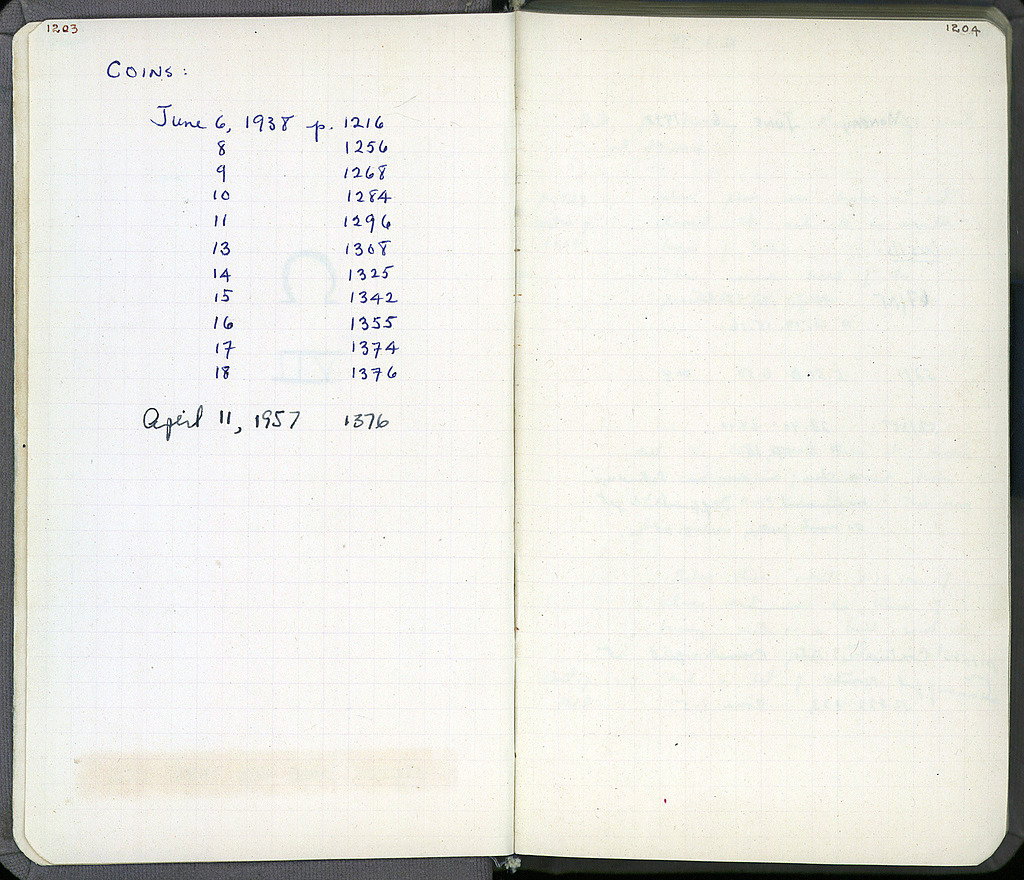 1203
COINS:
June 6, 1938 p. 1216
8 1256
9 1268
10 1284
11 1296
13 1308
14 1325
15 1342
16 1355
17 1374
18 1376
April 11, 1957 1376
1204